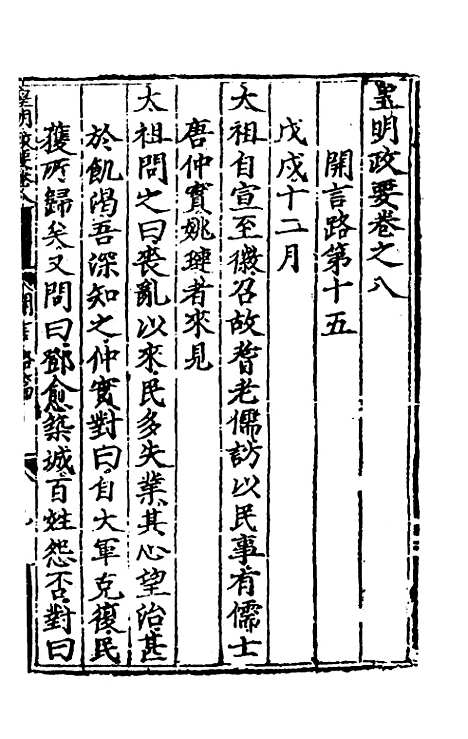 皇明政要卷之八
開言路第十五
戊戌十二月
太祖自宣至徽召故耆老儒訪以民事有儒士
唐仲實姚璉者來見
太祖問之曰喪亂以來民多失業其心望治甚
於飢渴吾深知之仲實對曰自大軍克復民
獲所歸矣又問曰鄧愈築城百姓怨否對曰
皇明政要卷八
開言路篇